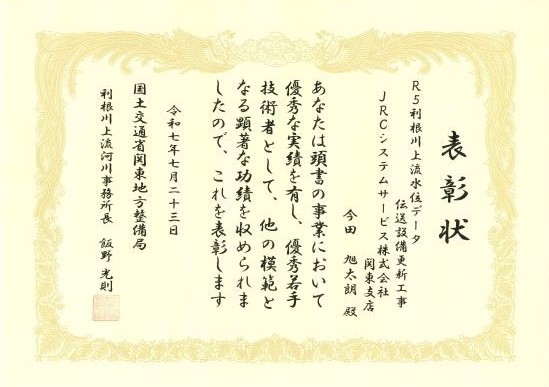 表彰状
R5利根川上流水位データ
伝送設備更新工事
JRCシステムサービス株式会社
関東支店
今田 旭太朗 殿
あなたは頭書の事業において
優秀な実績を有し、優秀若手
技術者として、他の模範と
なる顕著な功績を収められま
したので、これを表彰します
令和七年七月二十三日
国土交通省関東地方整備局
利根川上流河川事務所長 飯野 光則